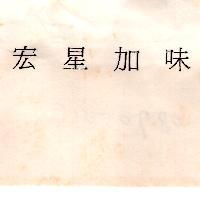 宏星加味